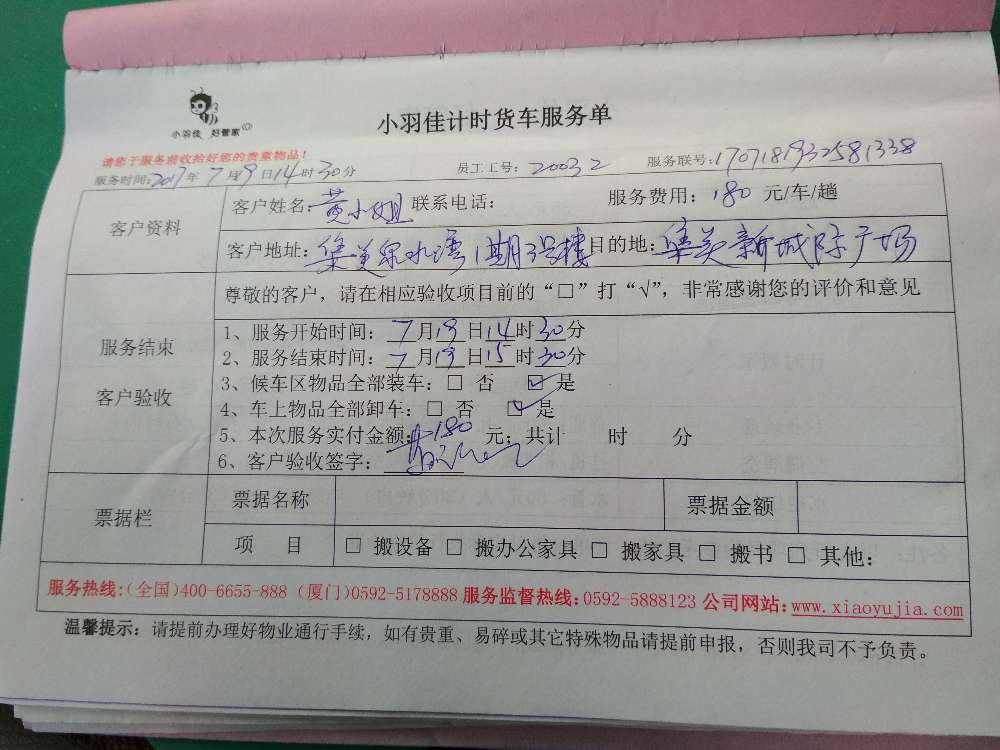 小羽佳 好管家
小羽佳计时货车服务单
请您于服务前收拾好您的贵重物品！
服务时间：2017年7月19日14时30分 员工工号：20032 服务联号：1707181932581338
客户资料
客户姓名：黄小姐 联系电话： 服务费用：180 元/车/趟
客户地址：集美泉水湾1期3号楼 目的地：集美新城际广场
服务结束
客户验收
尊敬的客户，请在相应验收项目前的“□”打“√”，非常感谢您的评价和意见
1、服务开始时间：7月19日14时30分
2、服务结束时间：7月19日15时30分
3、候车区物品全部装车：□ 否 ☑ 是
4、车上物品全部卸车：□ 否 ☑ 是
5、本次服务实付金额：180 元；共计 时 分
6、客户验收签字：
票据栏
票据名称 票据金额
项 目 □ 搬设备 □ 搬办公家具 □ 搬家具 □ 搬书 □ 其他：
服务热线：（全国）400-6655-888（厦门）0592-5178888 服务监督热线：0592-5888123 公司网站：www.xiaoyujia.com
温馨提示：请提前办理好物业通行手续，如有贵重、易碎或其它特殊物品请提前申报，否则我司不予负责。